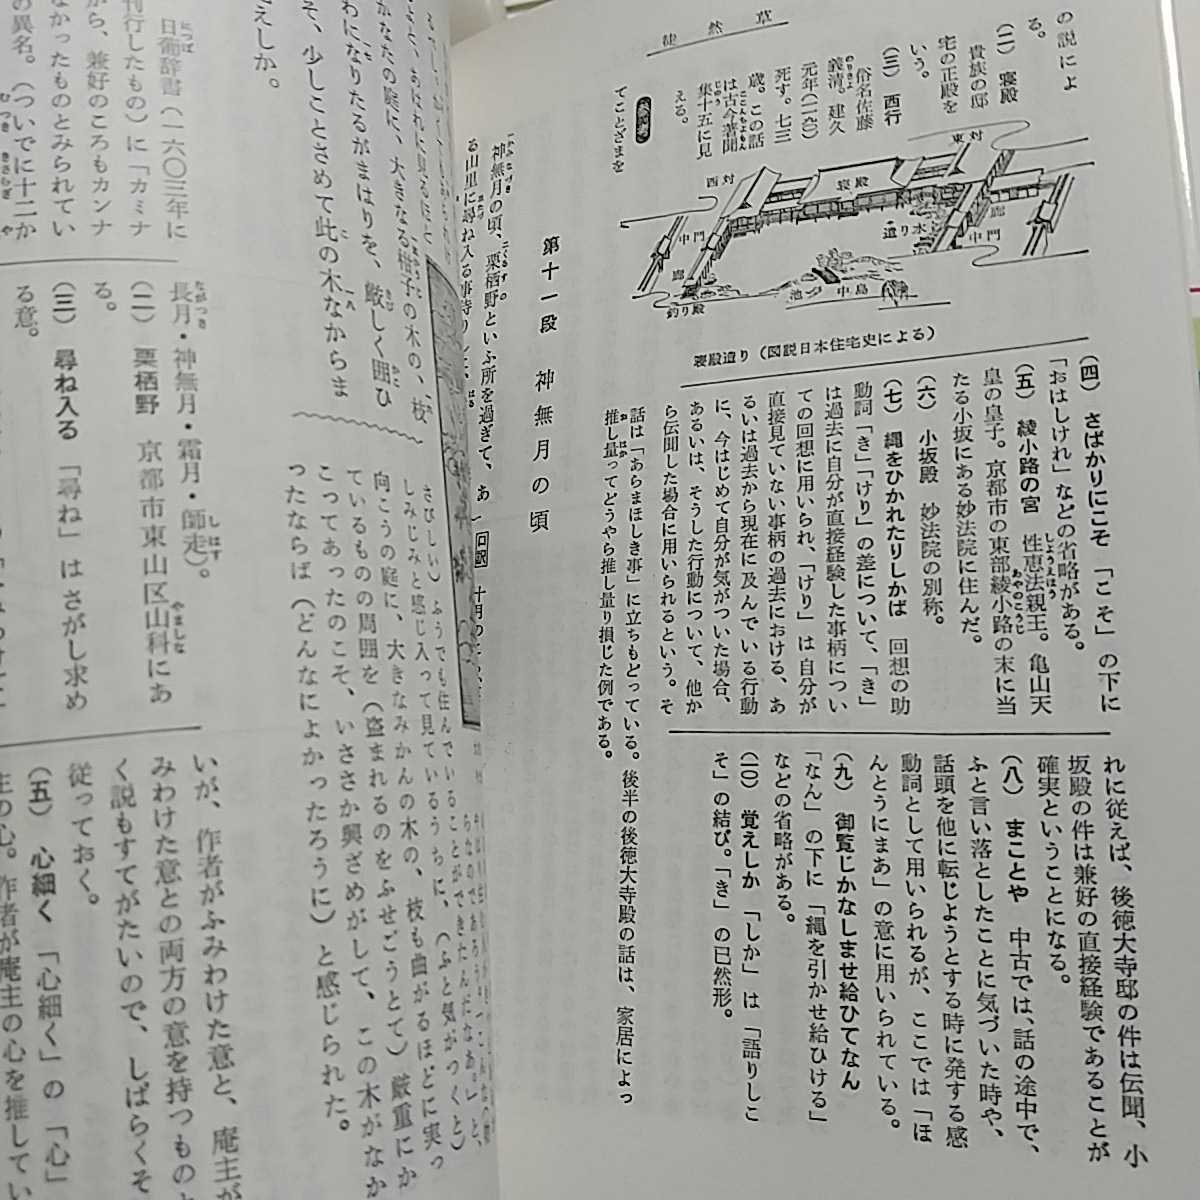 徒然草
の説によ
る。
(二) 寝殿
貴族の邸
宅の正殿を
いう。
(三) 西行
俗名佐藤
義清。建久
元年(一一九〇)
死す。七三
歳。この話
は古今著聞
集十五に見
える。
てことざまを
東対
寝殿
西対
廊
中門
遣り水
中門
廊
中島
池
釣り殿
寝殿造り(図説日本住宅史による)
(四) さばかりにこそ 「こそ」の下に
「おはしけれ」などの省略がある。
(五) 綾小路の宮 性恵法親王。亀山天
皇の皇子。京都市の東部綾小路の末に当
たる小坂にある妙法院に住んだ。
(六) 小坂殿 妙法院の別称。
(七) 縄をひかれたりしかば 回想の助
動詞「き」「けり」の差について、「き」
は過去に自分が直接経験した事柄につい
ての回想に用いられ、「けり」は自分が
直接見ていない事柄の過去における、あ
るいは過去から現在に及んでいる行動
に、今はじめて自分が気がついた場合、
あるいは、そうした行動について、他か
ら伝聞した場合に用いられるという。そ
れに従えば、後徳大寺邸の件は伝聞、小
坂殿の件は兼好の直接経験であることが
確実ということになる。
(八) まことや 中古では、話の途中で、
ふと言い落としたことに気づいた時や、
話頭を他に転じようとする時に発する感
動詞として用いられるが、ここでは「ほ
んとうにまあ」の意に用いられている。
(九) 御覧じかなしませ給ひてなん
「なん」の下に「縄を引かせ給ひける」
などの省略がある。
(一〇) 覚えしか 「しか」は「語りしこ
そ」の結び。「き」の已然形。
話は「あらまほしき事」に立ちもどっている。後半の後徳大寺殿の話は、家居によっ
推し量ってどうやら推し量り損じた例である。
第十一段 神無月の頃
神無月の頃、栗栖野といふ所を過ぎて、あ
る山里に尋ね入る事侍りしに、
口訳
かなたの庭に、大きなる柑子の木の、枝
わになりたるがまはりを、厳しく囲ひ
そ、少しことさめて此の木なからま
えしか。
しみじみと感じ入って見ているうちに、(ふと気がつくと)
向こうの庭に、大きなみかんの木の、枝も曲がるほどに実っ
ているものの周囲を(盗まれるのをふせごうとて)厳重にか
こってあったのこそ、いささか興ざめがして、この木がなか
ったならば(どんなによかったろうに)と感じられた。
日葡辞書(一六〇三年に
刊行したもの)に「カミナ
から、兼好のころもカンナ
なかったものとみられてい
の異名。(ついでに十二か
長月・神無月・霜月・師走)。
(二) 栗栖野 京都市東山区山科にあ
る。
(三) 尋ね入る 「尋ね」はさがし求め
る意。
いが、作者がふみわけた意と、庵主が
みわけた意との両方の意を持つものと
く説もすてがたいので、しばらくそ
従っておく。
(五) 心細く 「心細く」の「心」
主の心。作者が庵主の心を推してい